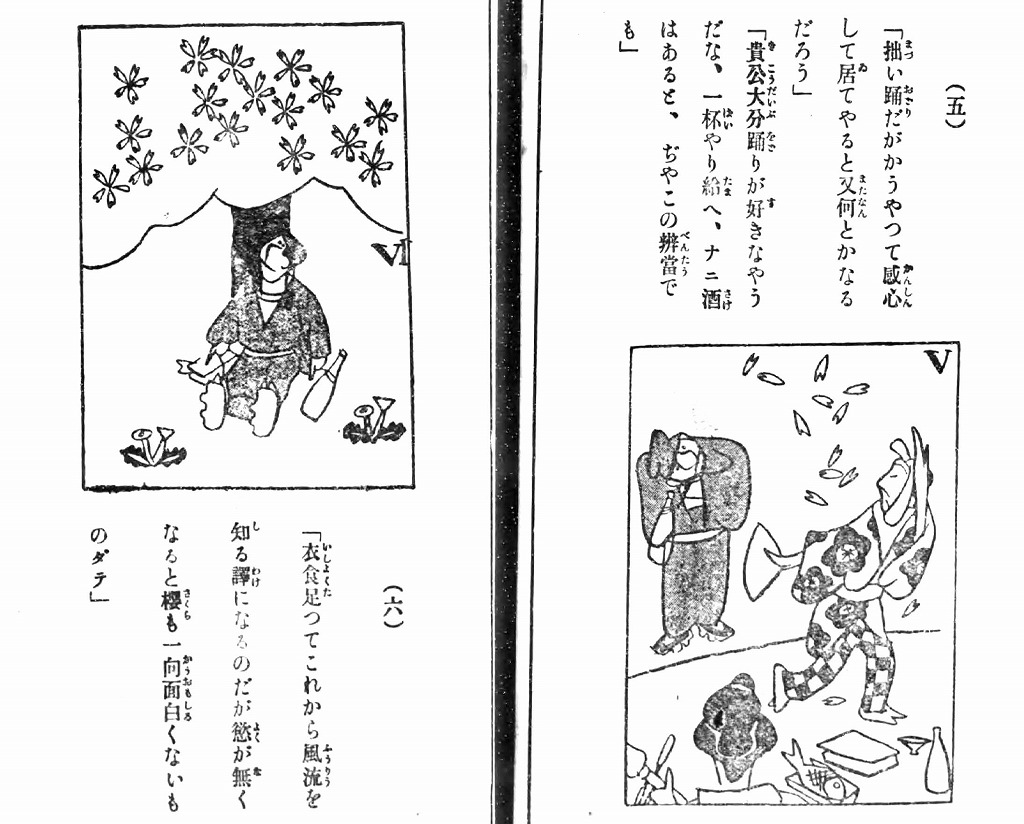 (五)
「拙い踊だがかうやつて感心
して居てやると又何とかなる
だろう」
「貴公大分踊りが好きなやう
だな、一杯やり給へ、ナニ酒
はあると、ぢやこの辨當で
も」
V
VI
(六)
「衣食足つてこれから風流を
知る譯になるのだが慾が無く
なると櫻も一向面白くないも
のダテ」